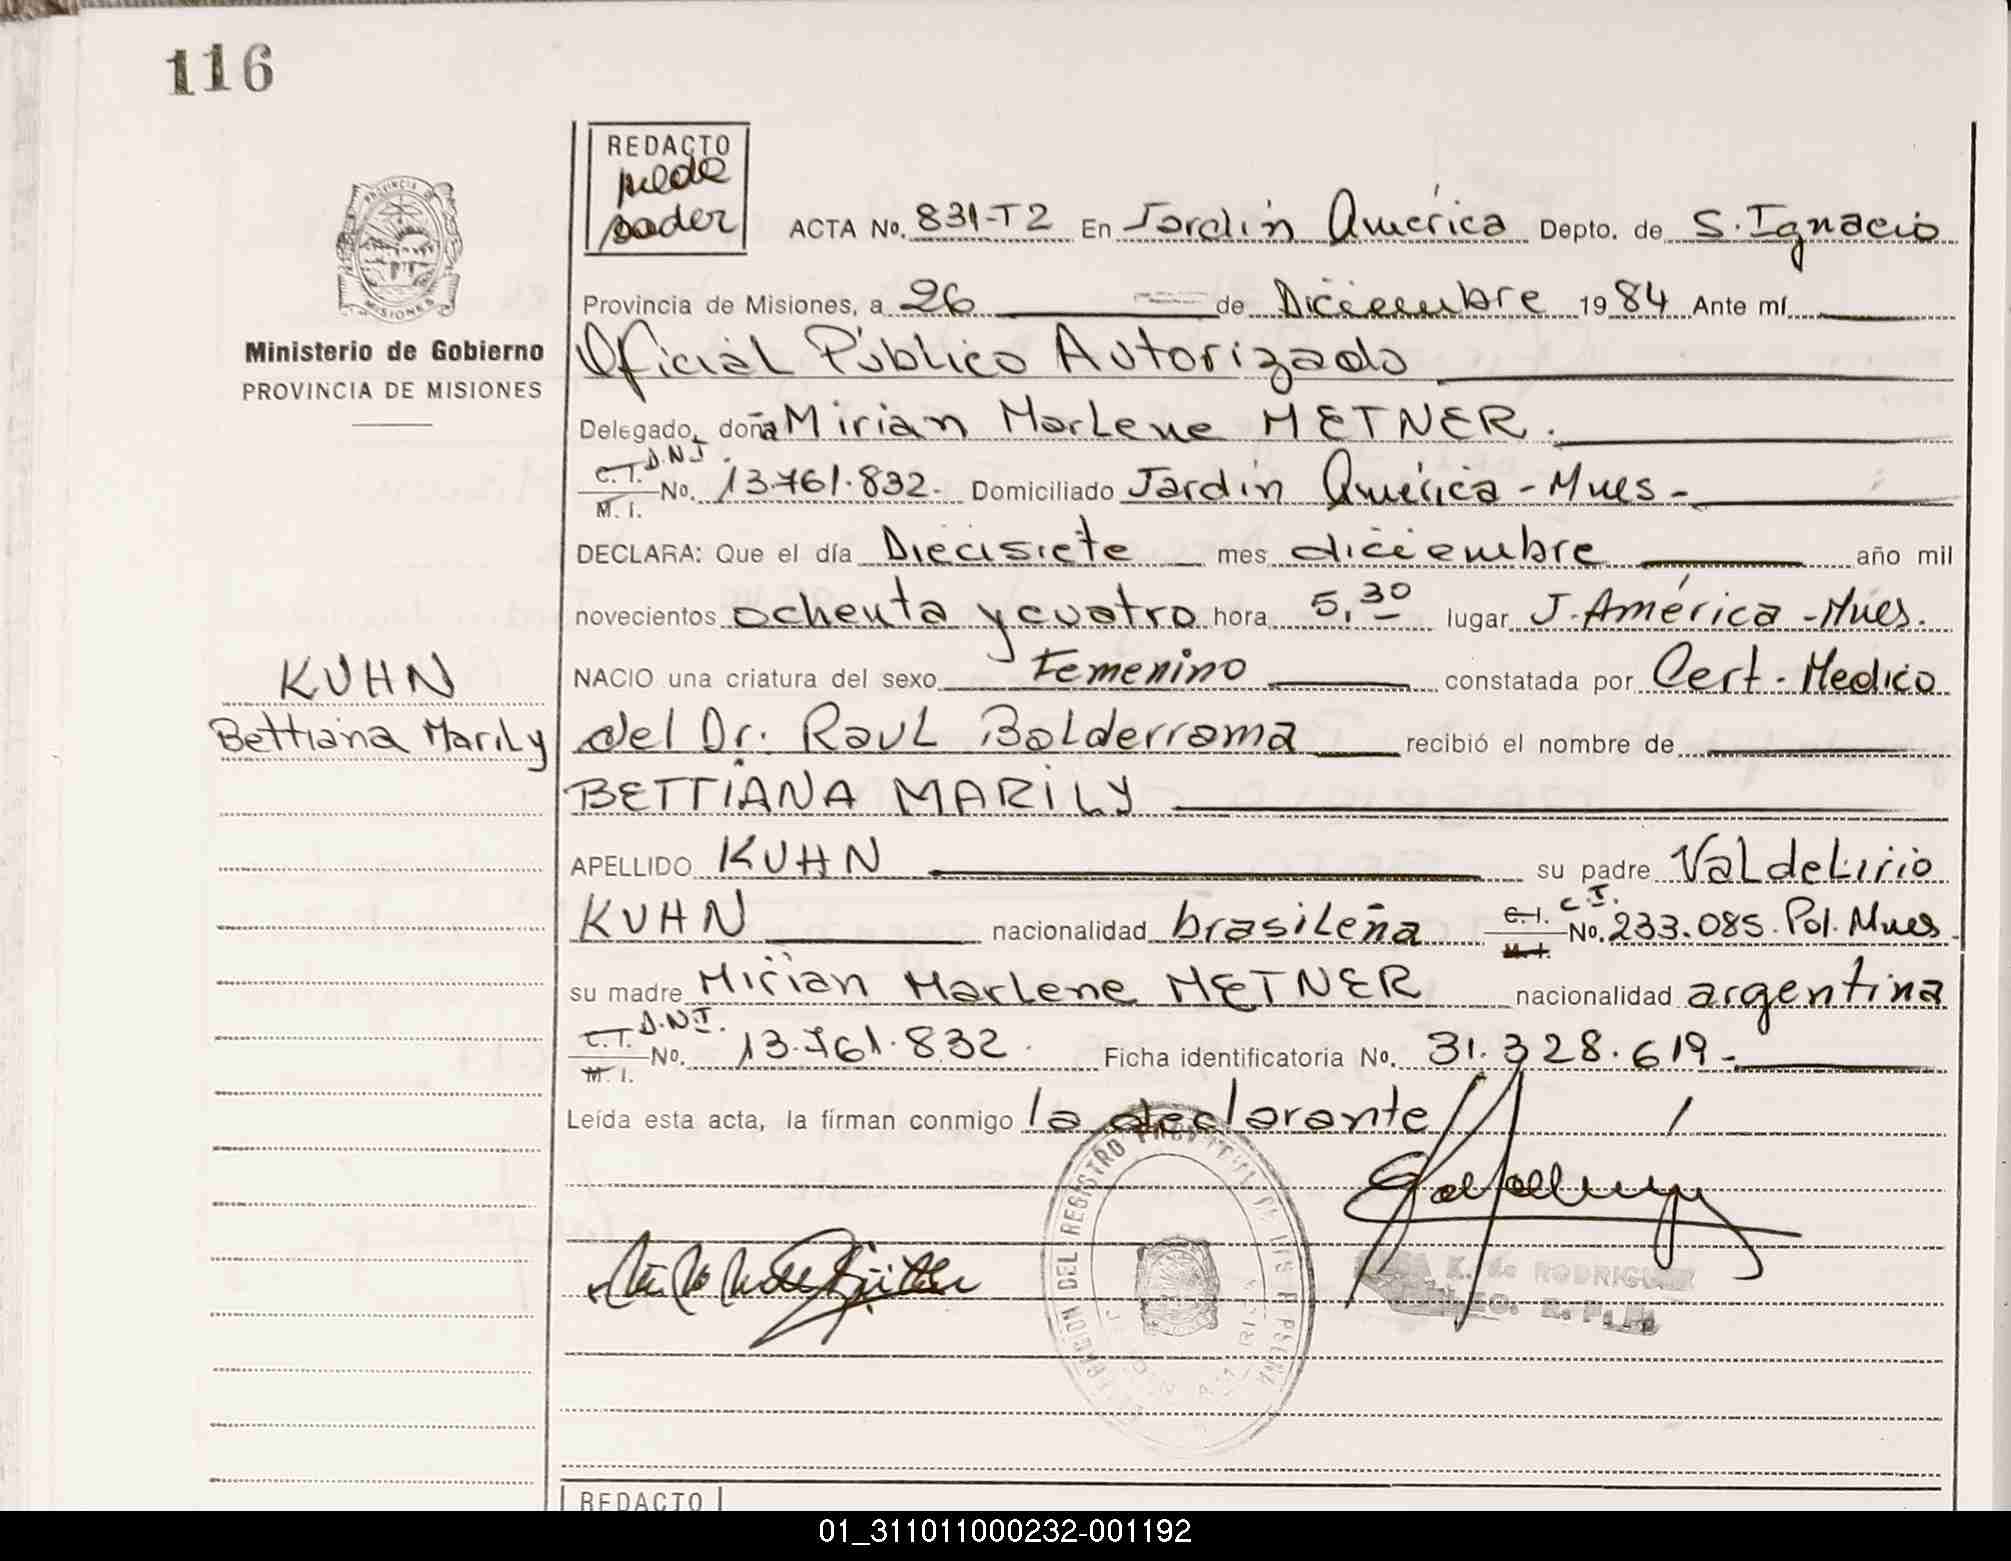 116
REDACTO
ACTA No. 831-T2 En Jardín América Depto. de S. Ignacio
Provincia de Misiones, a 26 de Diciembre 1984 Ante mí
Ministerio de Gobierno
PROVINCIA DE MISIONES
Oficial Público Autorizado
Delegado, doña Mirian Marlene METNER.
C.I. D.N.I. M. I. No. 13.761.832. Domiciliado Jardín América - Mnes -
DECLARA: Que el día Diecisiete mes diciembre año mil
novecientos ochenta y cuatro hora 5,30 lugar J. América - Mnes.
KUHN
Bettiana Marily
NACIO una criatura del sexo Femenino constatada por Cert. Medico
del Dr. Raul Balderrama recibió el nombre de
BETTIANA MARILY
APELLIDO KUHN su padre Valdelirio
KUHN nacionalidad brasileña C.I. C.I. M.I. No. 233.085. Pol. Mnes.
su madre Mirian Marlene METNER nacionalidad argentina
C.I. D.N.I. M. I. No. 13.761.832. Ficha identificatoria No. 31.328.619.-
Leída esta acta, la firman conmigo la declarante
DEL REGISTRO PROVINCIAL DE LAS PERSONAS
K. de RODRIGUEZ
REDACTO
01_311011000232-001192